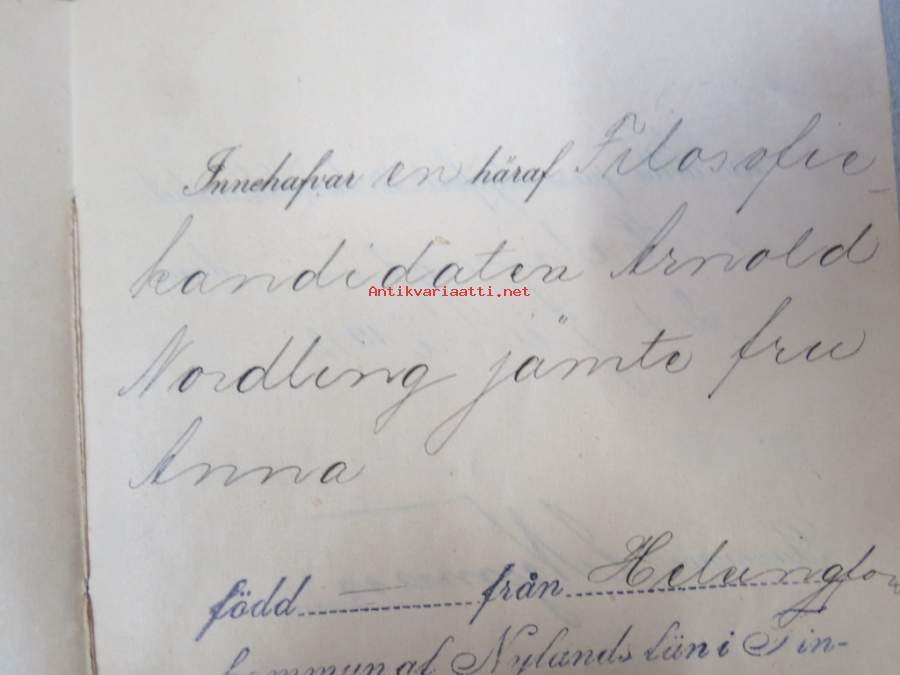 Innehafvar en häraf Filosofie
kandidaten Arnold
Antikvariaatti.net
Nordling jämte fru
Anna
född — från Helsingfor
kommun af Nylands län i Fin-